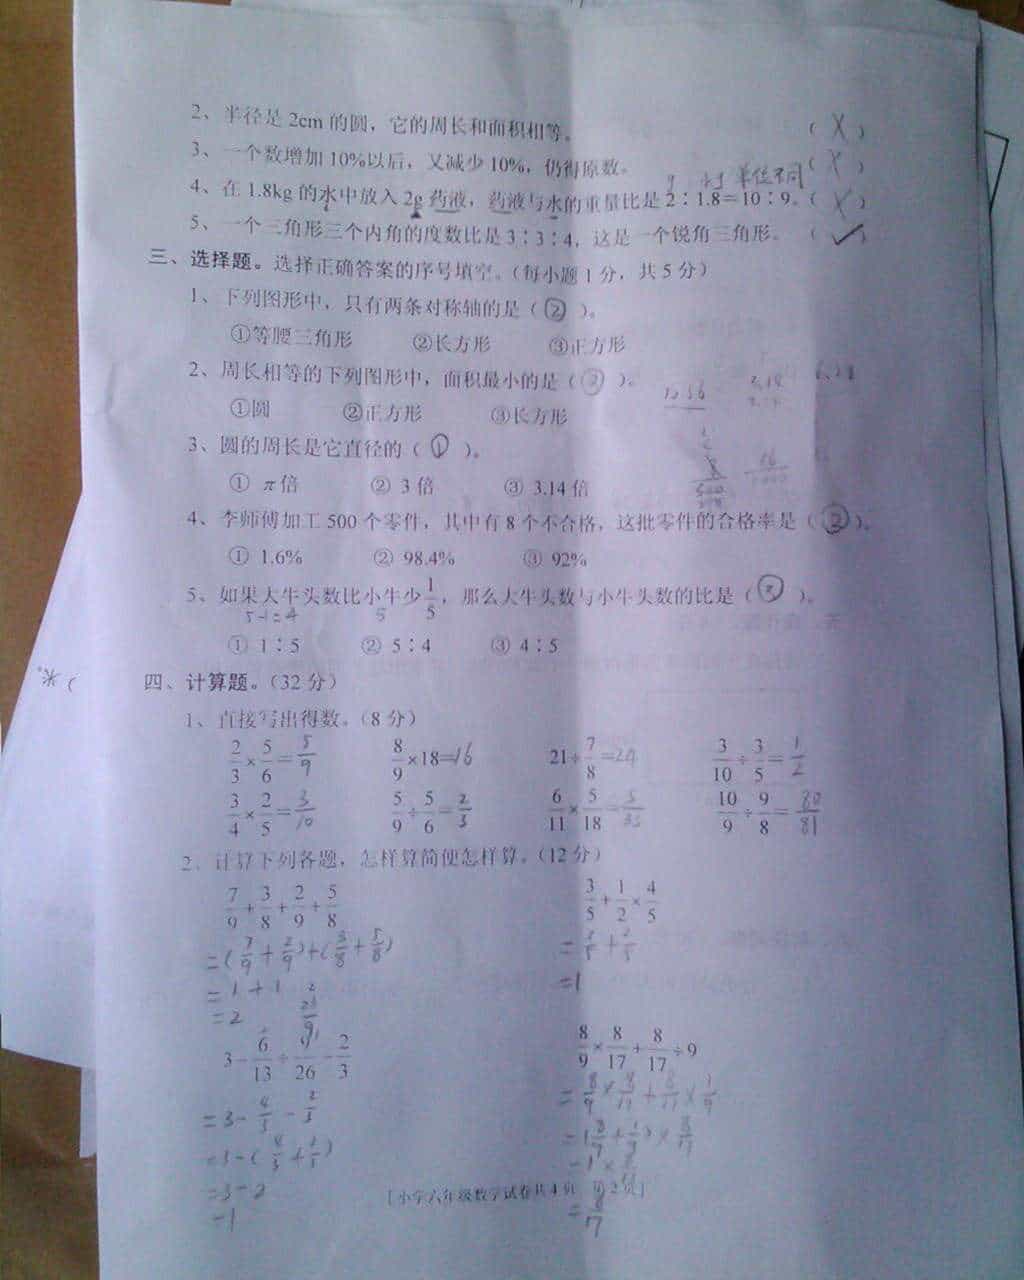 2、半径是 2cm 的圆，它的周长和面积相等。 ( X )
3、一个数增加 10%以后，又减少 10%，仍得原数。 ( X )
单位不同
4、在 1.8kg 的水中放入 2g 药液，药液与水的重量比是 2∶1.8＝10∶9。( X )
5、一个三角形三个内角的度数比是 3∶3∶4，这是一个锐角三角形。 ( ✓ )
三、选择题。选择正确答案的序号填空。（每小题 1 分，共 5 分）
1、下列图形中，只有两条对称轴的是（ ② ）。
①等腰三角形 ②长方形 ③正方形
2、周长相等的下列图形中，面积最小的是（ ③ ）。
①圆 ②正方形 ③长方形
3、圆的周长是它直径的（ ① ）。
① π倍 ② 3 倍 ③ 3.14 倍
4、李师傅加工 500 个零件，其中有 8 个不合格，这批零件的合格率是（ ② ）。
① 1.6% ② 98.4% ③ 92%
5、如果大牛头数比小牛少 1/5，那么大牛头数与小牛头数的比是（ ③ ）。
5-1=4 5
① 1∶5 ② 5∶4 ③ 4∶5
米。)
四、计算题。（32 分）
1、直接写出得数。（8 分）
2/3×5/6=5/9 8/9×18=16 21÷7/8=24 3/10÷3/5=1/2
3/4×2/5=3/10 5/9÷5/6=2/3 6/11×5/18=5/33 10/9÷9/8=80/81
2、计算下列各题，怎样算简便怎样算。（12 分）
7/9+3/8+2/9+5/8 3/5+1/2×4/5
=(7/9+2/9)+(3/8+5/8) =3/5+2/5
=1+1 =1
=2
3-6/13÷9/26-2/3 8/9×8/17+8/17÷9
=3-4/3-2/3 =8/9×8/17+8/17×1/9
=3-(4/3+2/3)
=3-2
=1
[小学六年级数学试卷共 4 页 2页]